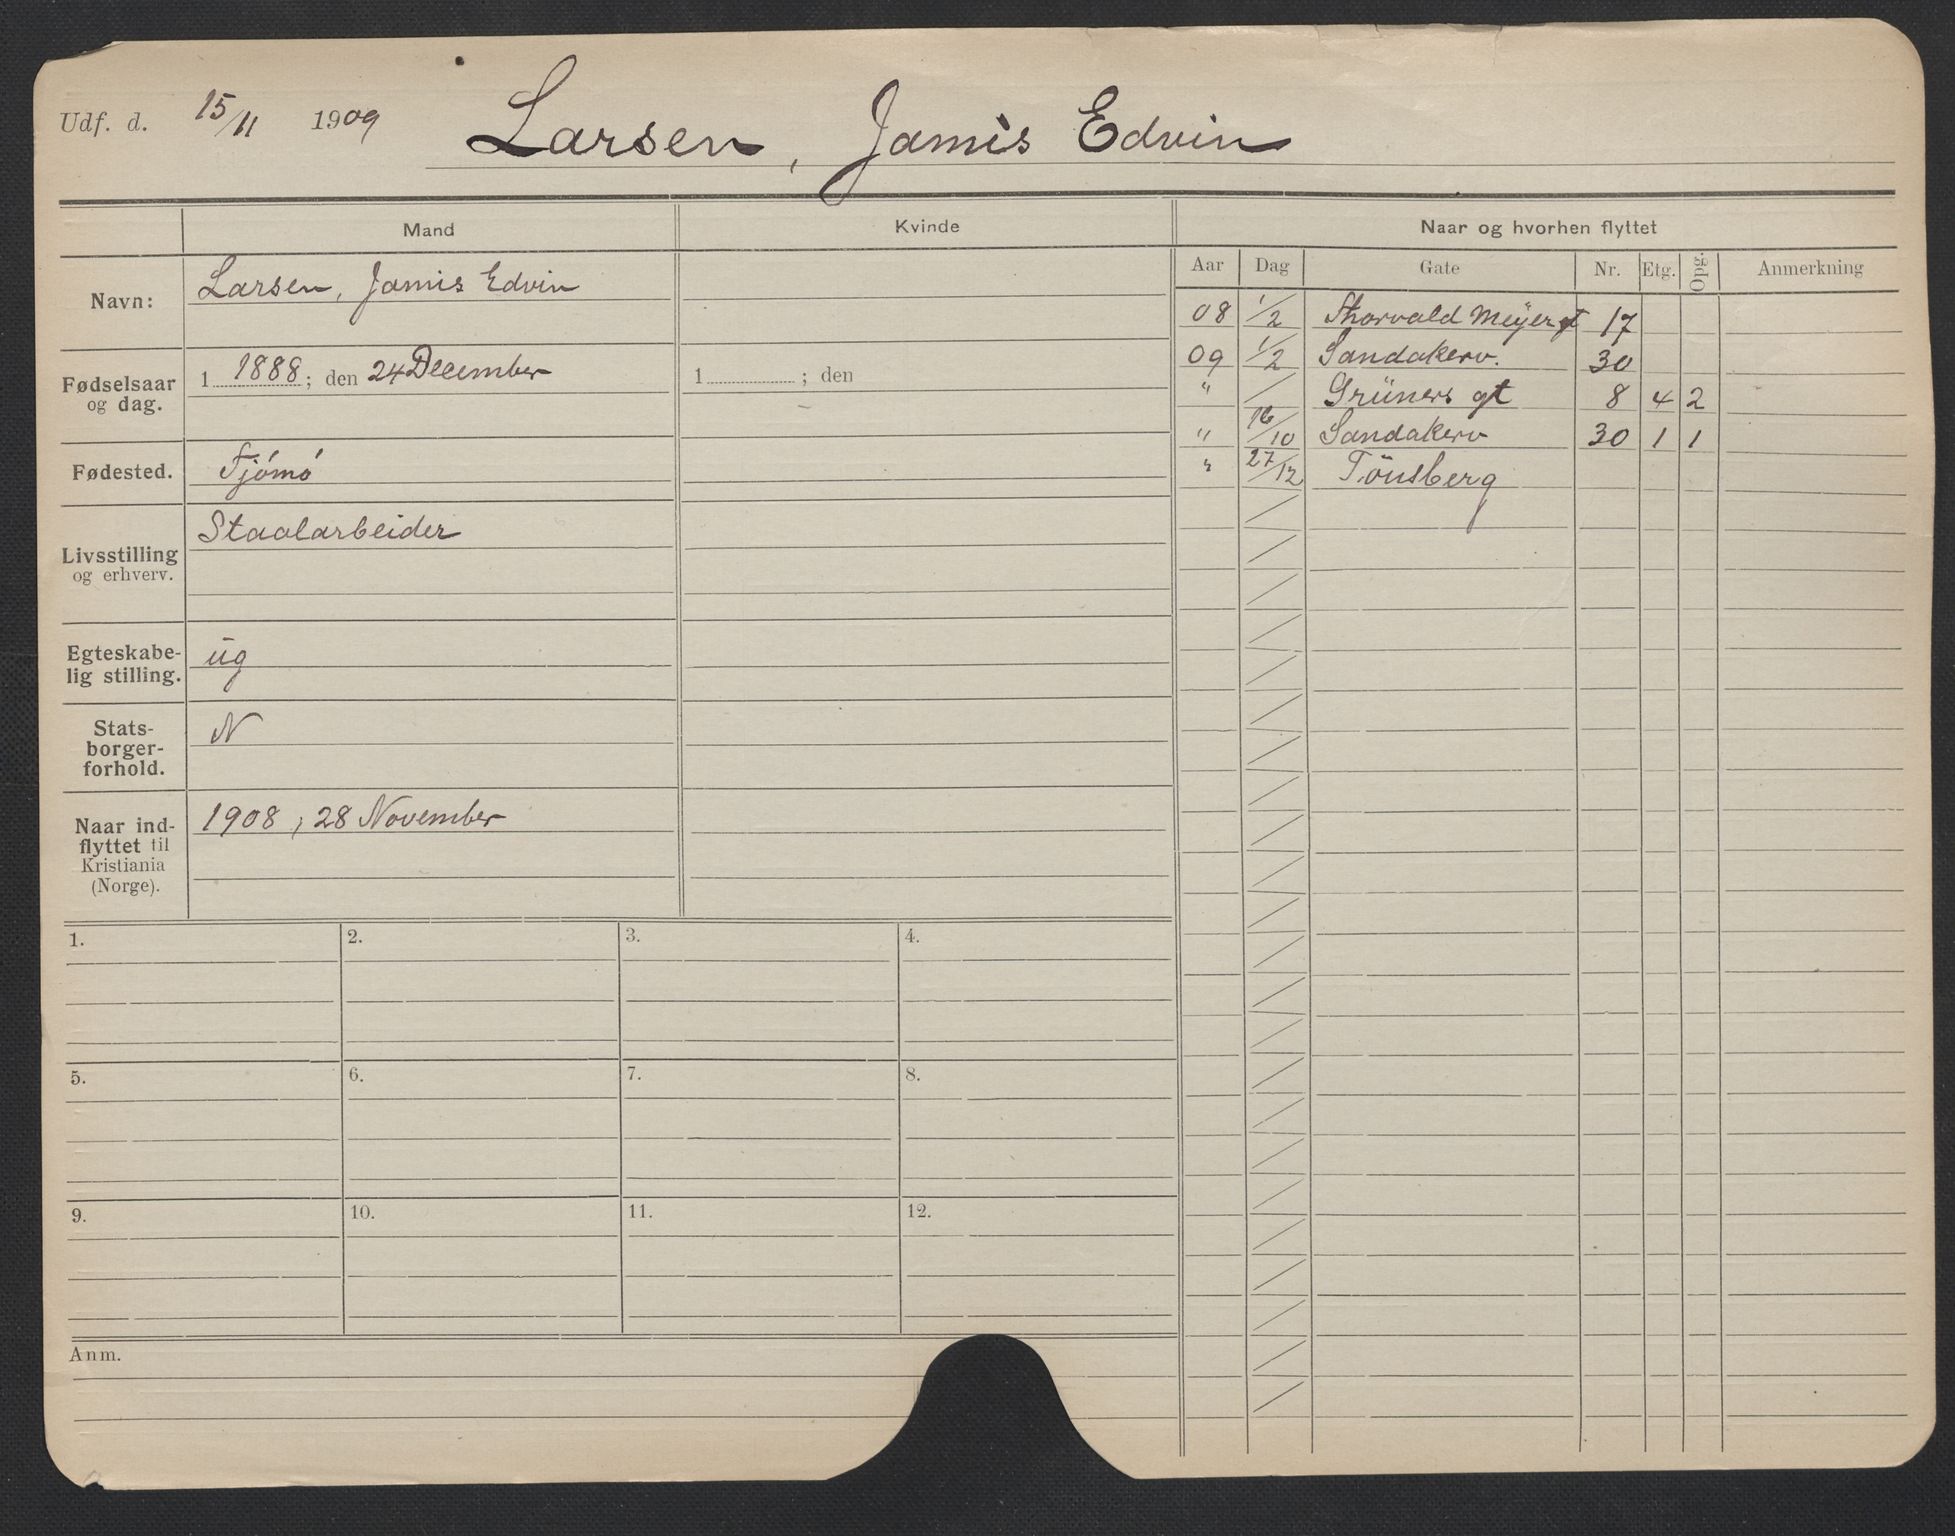 Udf. d. 15/11 1909 Larsen, Jamis Edvin
Mand Kvinde Naar og hvorhen flyttet
Aar Dag Gate Nr. Etg. Opg. Anmerkning
Navn: Larsen, Jamis Edvin
Fødselsaar og dag. 1 1888; den 24 December 1 ; den
Fødested. Tjómó
Livsstilling og erhverv. Staalarbeider
Egteskabe-
lig stilling. ug
Stats-
borger-
forhold. N
Naar ind-
flyttet til
Kristiania
(Norge). 1908; 28 November
08 1/2 Thorvald Meyer gt 17
09 1/2 Sandakerv. 30
" / Grüners gt 8 4 2
" 16/10 Sandakerv 30 1 1
" 27/12 Tönsberg
1. 2. 3. 4.
5. 6. 7. 8.
9. 10. 11. 12.
Anm.